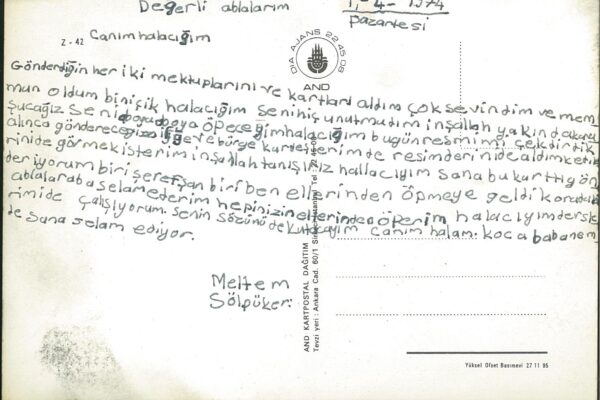 Değerli ablalarım
1,-4-1974
pazartesi
Z - 42
Canım halacığım
DIA AJANS 22 45 08
AND
Gönderdiğin her iki mektuplarını ve kartları aldım çok sevindim ve mem
nun oldum biricik halacığım seni hiç unutmadım inşallah yakında kavu
şucağız seni doya doya öpeceğim halacığım bugün resmimi çektirdik
alınca göndereceğiz
kardeşlerimde resimlerinide aldım
rinide görmek isterim inşallah tanışırız hallacığım sana bu kartı gön
deriyorum biri şerefşan biri ben ellerinden öpmeye geldik
ablalaraba selam ederim hepinizin ellerinden öperim halacıyım ders
rimide çalışıyorum. senin sözünüde tutacayım canım halam. koca babanem
de sana selam ediyor.
Meltem
Sölpüker.
AND KARTPOSTAL DAĞITIM
Tevzi yeri : Ankara Cad. 60/1
Yüksel Ofset Basımevi 27 11 95